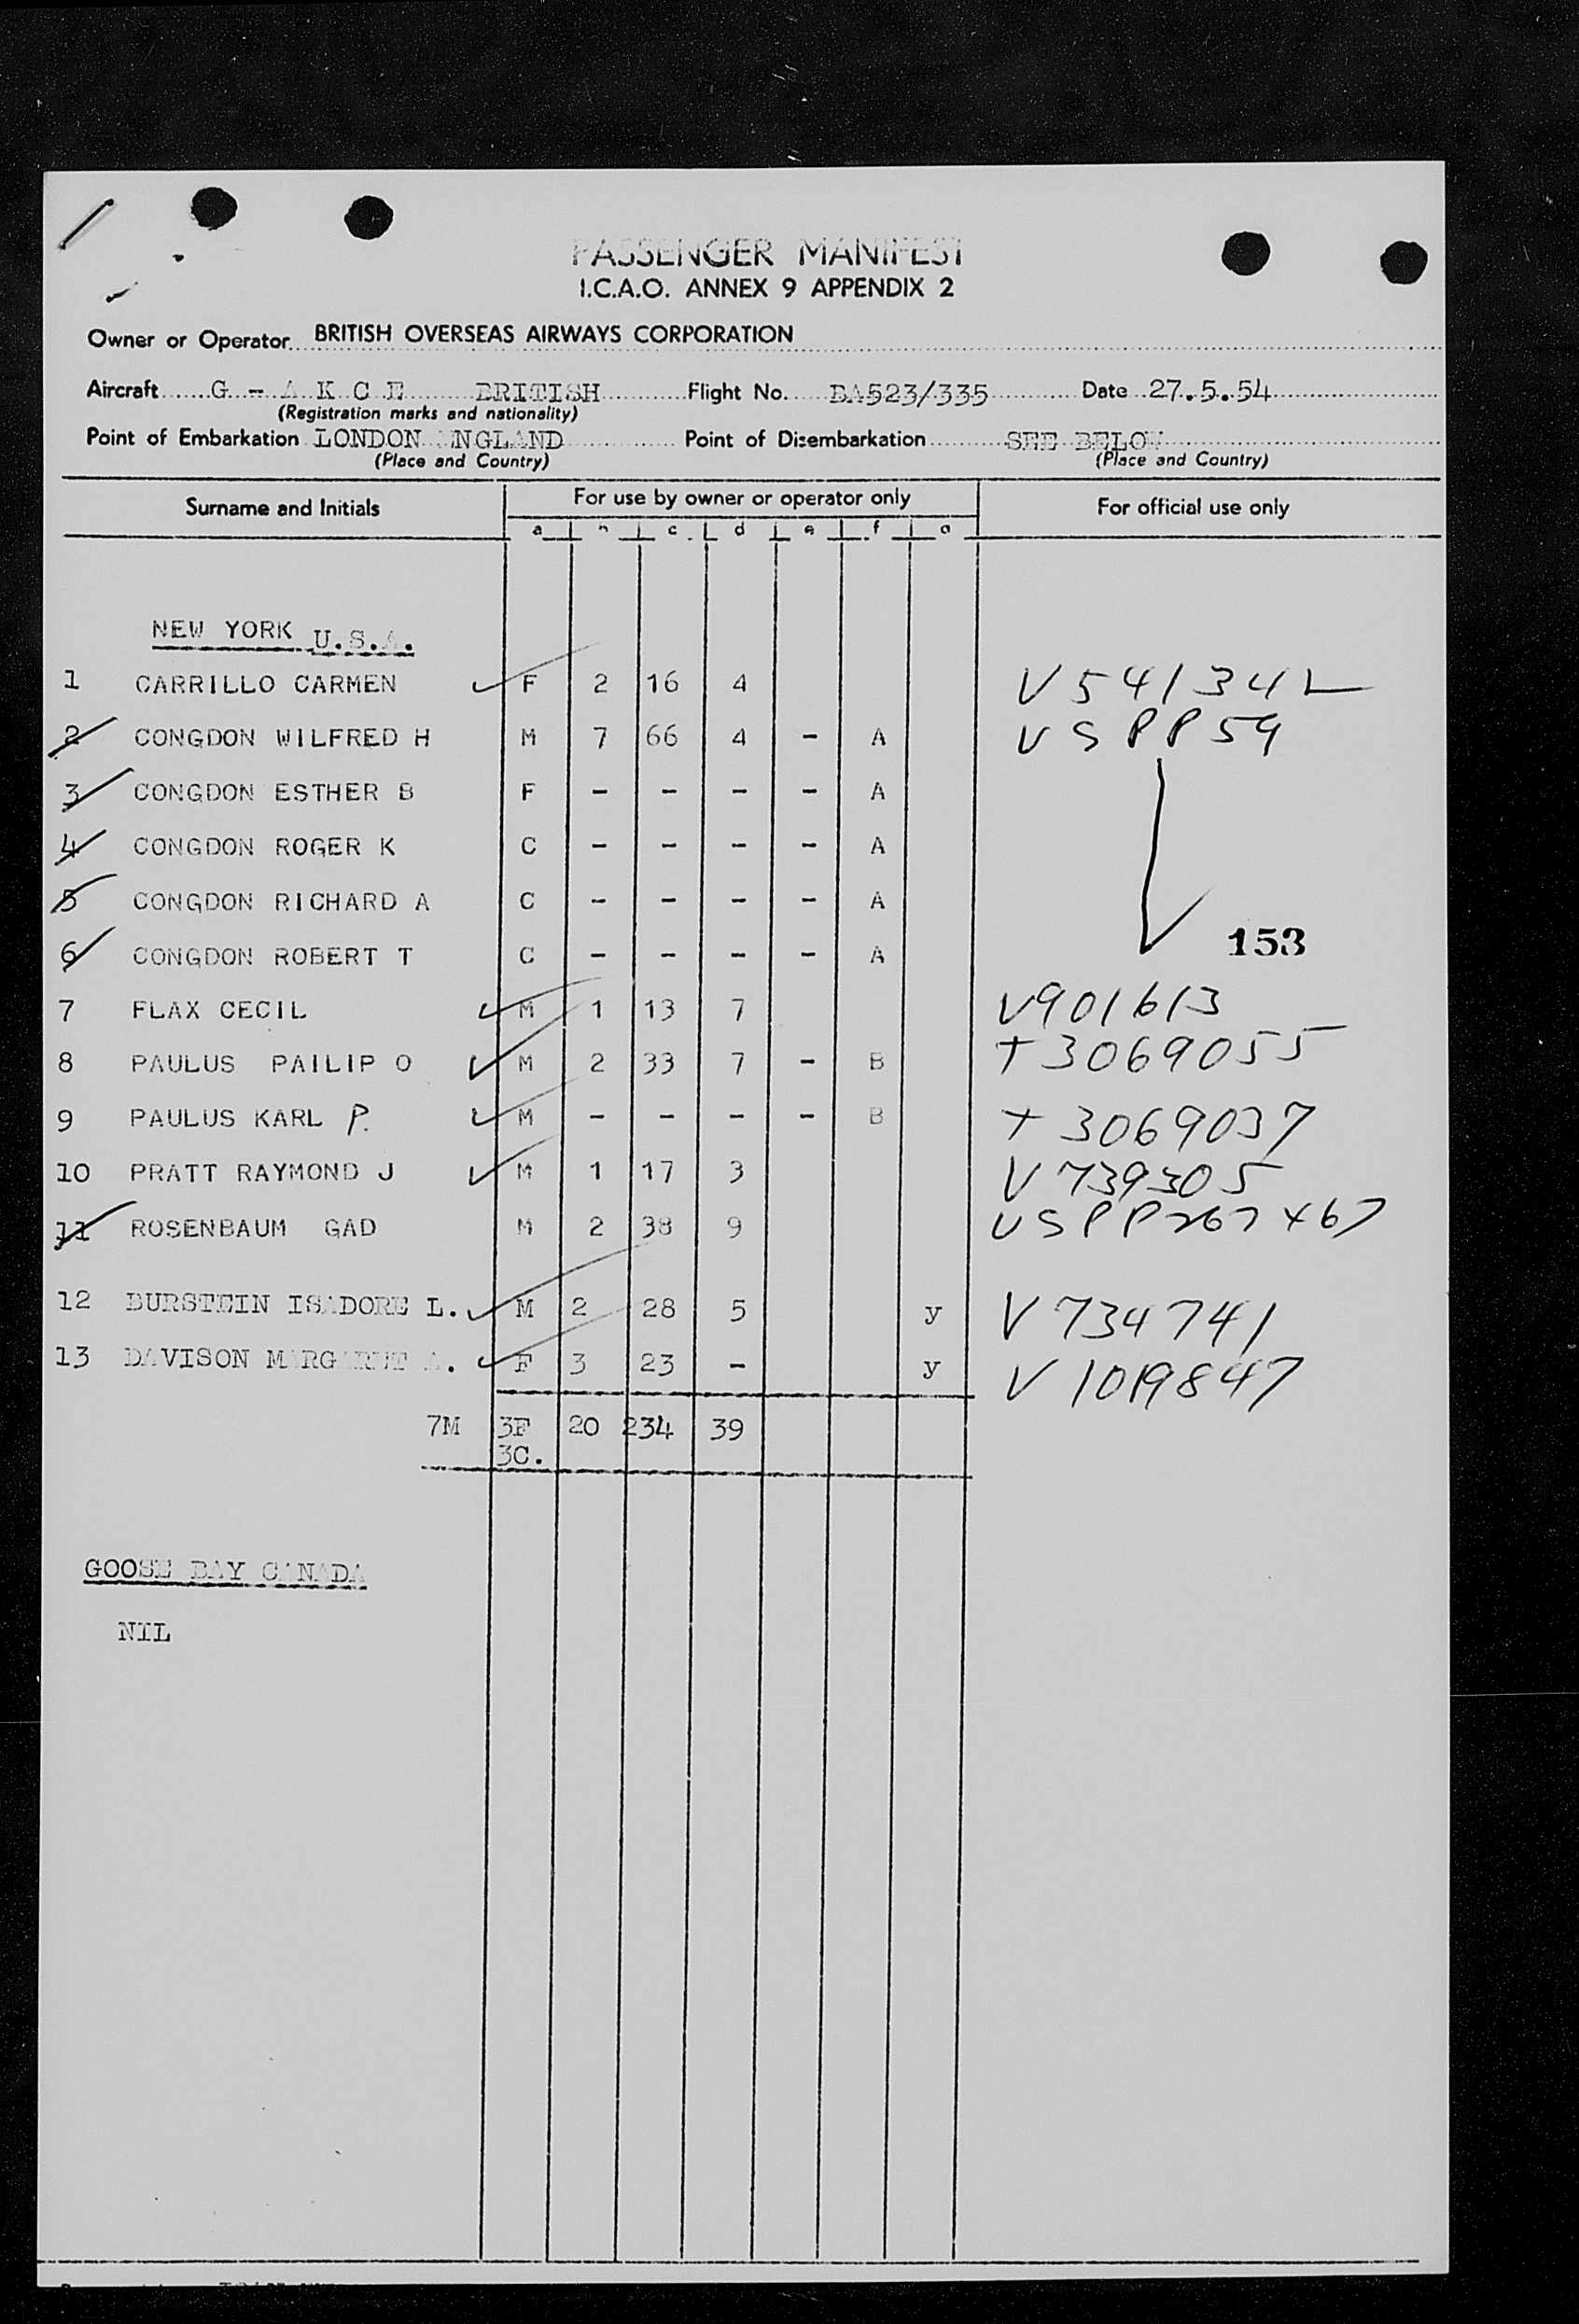 PASSENGER MANIFEST
I.C.A.O. ANNEX 9 APPENDIX 2
Owner or Operator BRITISH OVERSEAS AIRWAYS CORPORATION
Aircraft G - A K C E BRITISH Flight No. BA523/335 Date 27.5.54
(Registration marks and nationality)
Point of Embarkation LONDON ENGLAND Point of Disembarkation SEE BELOW
(Place and Country) (Place and Country)
Surname and Initials For use by owner or operator only For official use only
a b c d e f g
NEW YORK U.S.A.
1 CARRILLO CARMEN F 2 16 4 V541342
2 CONGDON WILFRED H M 7 66 4 - A USPP59
3 CONGDON ESTHER B F - - - - A
4 CONGDON ROGER K C - - - - A
5 CONGDON RICHARD A C - - - - A
6 CONGDON ROBERT T C - - - - A 153
7 FLAX CECIL M 1 13 7 V901613
8 PAULUS PAILIP O M 2 33 7 - B T3069055
9 PAULUS KARL P. M - - - - B T3069037
10 PRATT RAYMOND J M 1 17 3 V739305
11 ROSENBAUM GAD M 2 38 9
12 BURSTEIN ISADORE L. M 2 28 5 y V734741
13 DAVISON MARGARET A. F 3 23 - y V1019847
7M 3F 20 234 39
3C.
GOOSE BAY CANADA
NIL